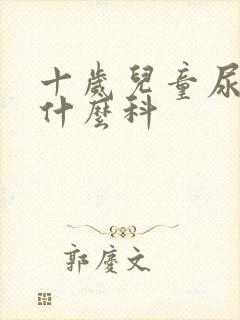 十歲兒童尿
什麼科
郭慶文